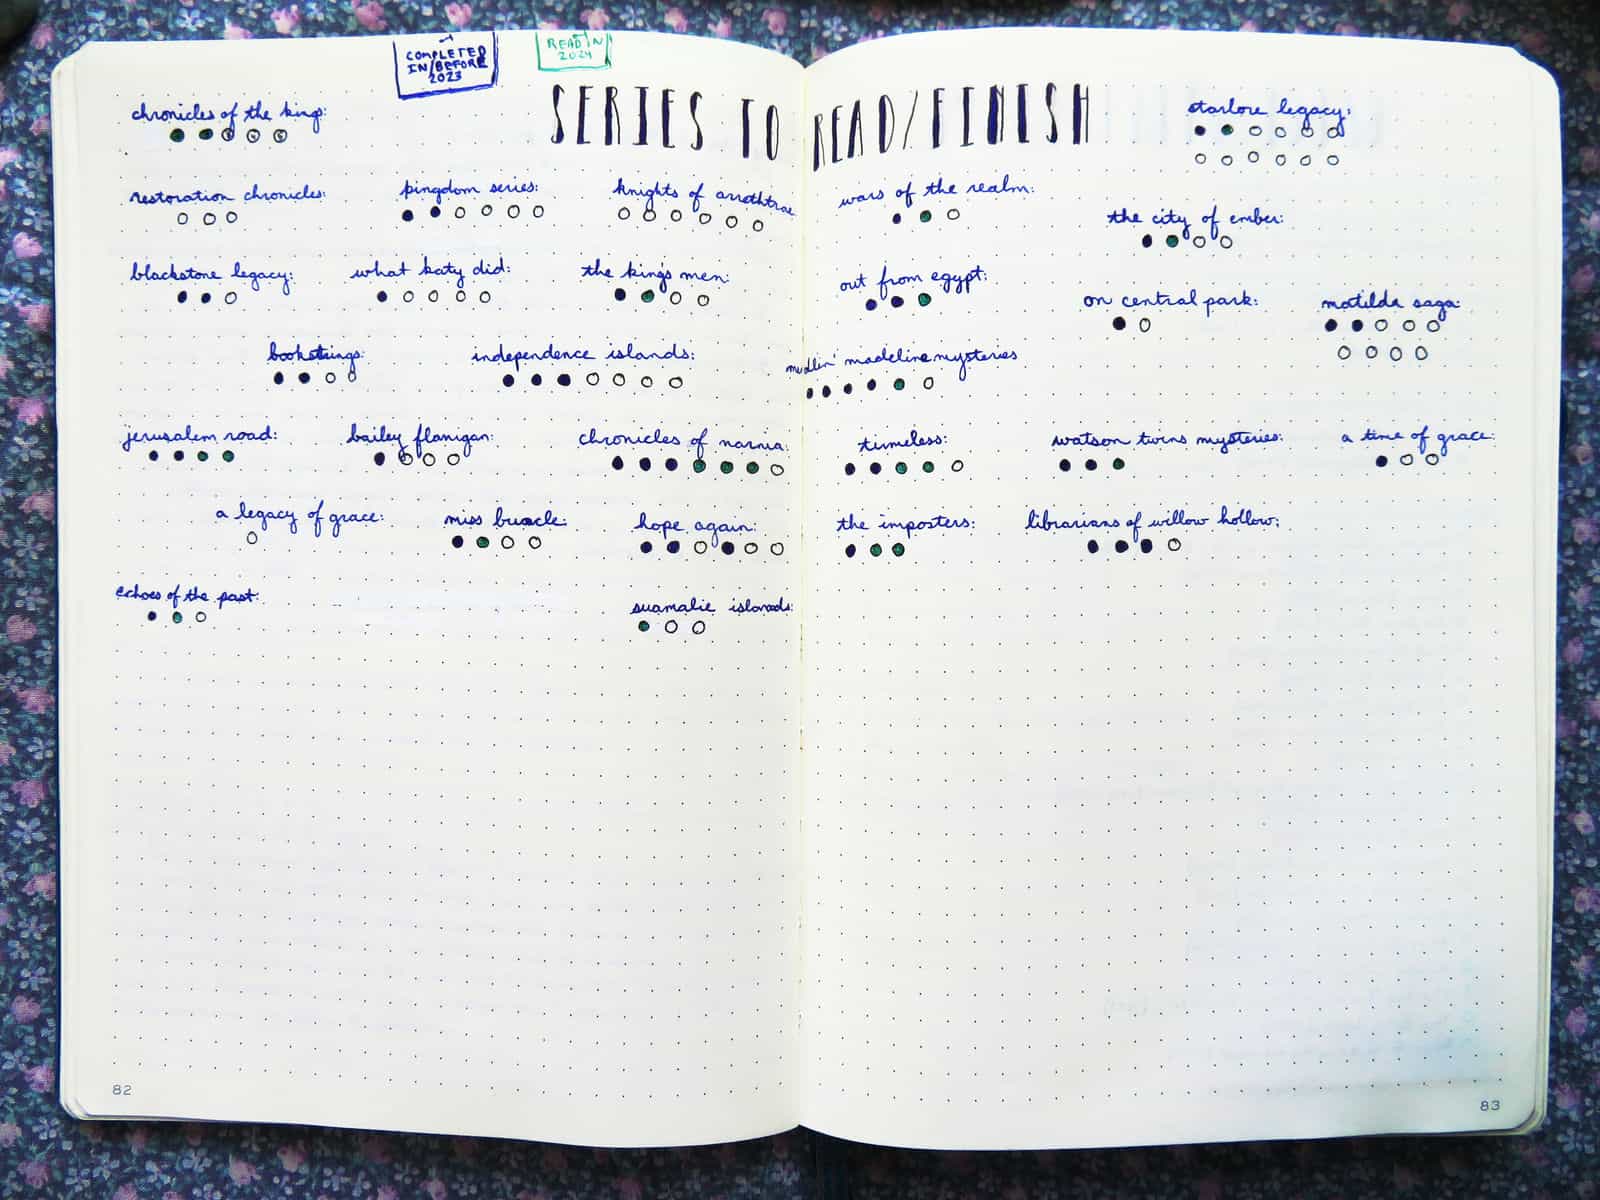 COMPLETED
IN/BEFORE
2023
READ IN
2024
SERIES TO READ/FINISH
chronicles of the king:
starlore legacy:
restoration chronicles:
pingdom series:
knights of arrethtrae
wars of the realm:
the city of ember:
blackstone legacy:
what katy did:
the king's men:
out from egypt:
on central park:
matilda saga:
bookstrings:
independence islands:
madeline mysteries
jerusalem road:
bailey flanigan:
chronicles of narnia:
timeless:
watson twins mysteries:
a time of grace:
a legacy of grace:
miss buncle:
hope again:
the imposters:
librarians of willow hollow:
echoes of the past:
suamalie islands:
82
83